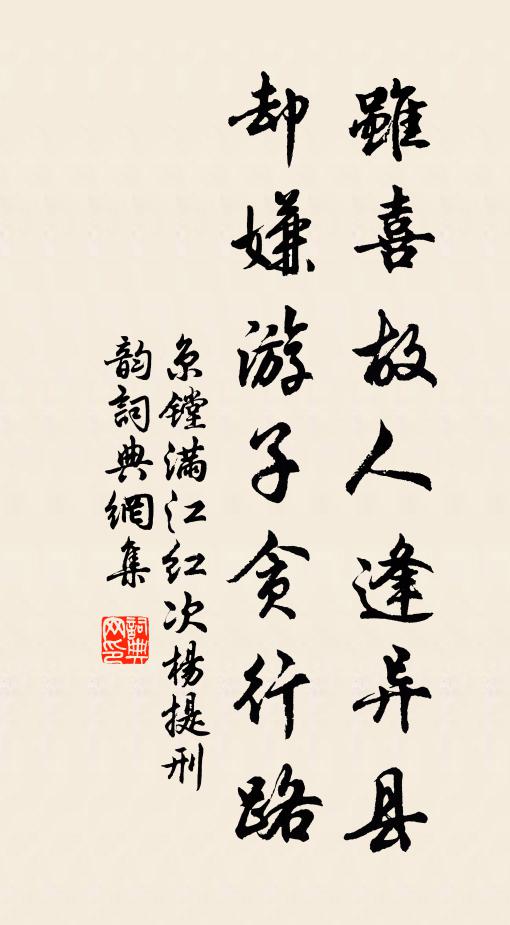 雖喜故人逢异县
却嫌游子贪行路
京镗满江红次楊提刑
韵詞典網集
詞典网印